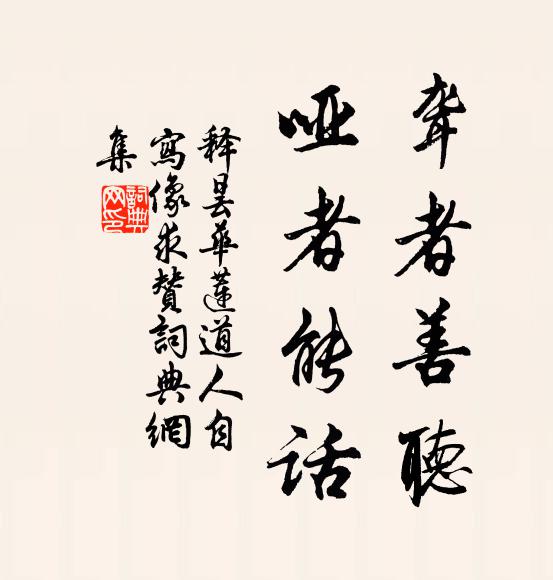 聋者善聽
哑者能话
释昙华莲道人自
寫像求赞詞典網
集
詞典
网印